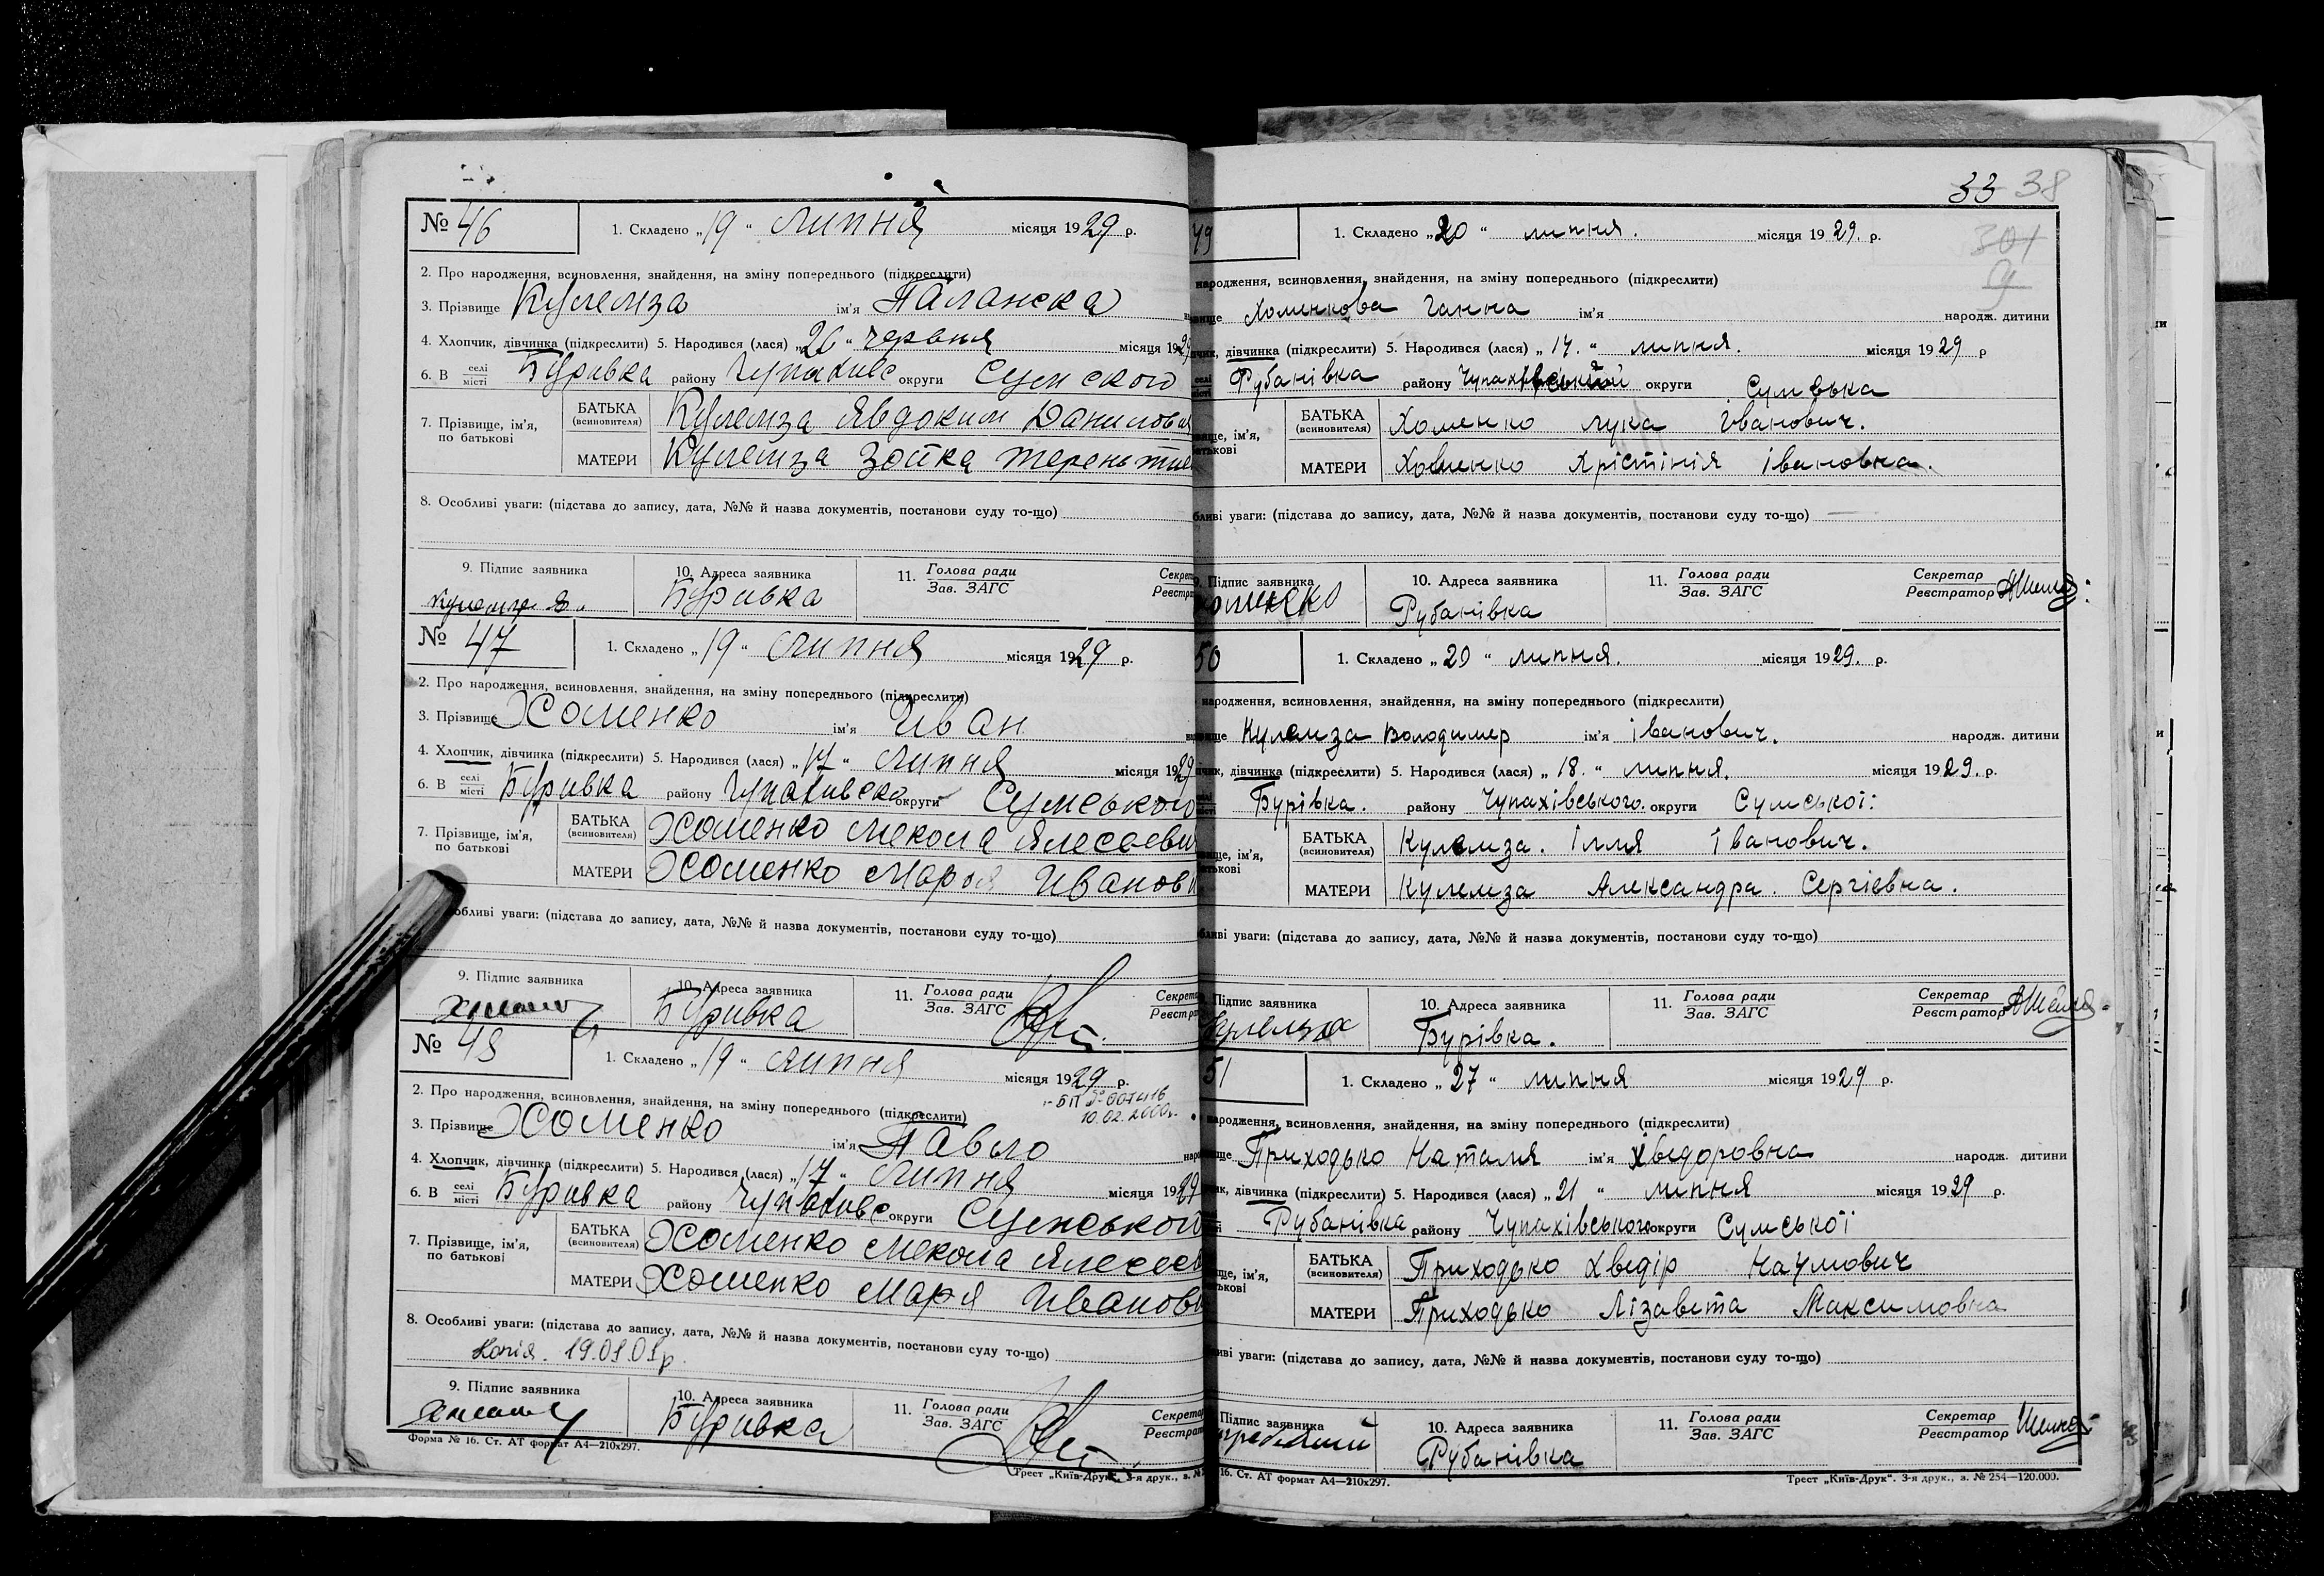 № 46
1. Складено „19“ липня місяця 1929 р.
2. Про народження, всиновлення, знайдення, на зміну попереднього (підкреслити)
3. Прізвище Кулемза ім'я Палажка
4. Хлопчик, дівчинка (підкреслити) 5. Народився (лася) „26“ червня місяця 1929
6. В селі місті Буривка району Чупахивс округи Сумского
7. Прізвище, ім'я, по батькові
БАТЬКА (всиновителя) Кулемза Явдоким Данилов
МАТЕРИ Кулемза Зоика Тереньтие
8. Особливі уваги: (підстава до запису, дата, №№ й назва документів, постанови суду то-що)
9. Підпис заявника 10. Адреса заявника 11. Голова ради Зав. ЗАГС
Буривка
№ 47
1. Складено „19“ липня місяця 1929 р.
2. Про народження, всиновлення, знайдення, на зміну попереднього (підкреслити)
3. Прізвище Хоменко ім'я Иван
4. Хлопчик, дівчинка (підкреслити) 5. Народився (лася) „17“ липня місяця 1929
6. В селі місті Буривка району Чупахивско округи Сумського
7. Прізвище, ім'я, по батькові
БАТЬКА (всиновителя) Хоменко Мекола
МАТЕРИ Хоменко Марья Иванов
обливі уваги: (підстава до запису, дата, №№ й назва документів, постанови суду то-що)
9. Підпис заявника 10. Адреса заявника 11. Голова ради Зав. ЗАГС
Буривка
№ 48
1. Складено „19“ липня місяця 1929 р.
10.02.2000р.
2. Про народження, всиновлення, знайдення, на зміну попереднього (підкреслити)
3. Прізвище Хоменко ім'я Павло
4. Хлопчик, дівчинка (підкреслити) 5. Народився (лася) „17“ липня місяця 1929
6. В селі місті Буривка району Чупахивс округи Сумського
7. Прізвище, ім'я, по батькові
БАТЬКА (всиновителя) Хоменко Мекола
МАТЕРИ Хоменко Маря Иванов
8. Особливі уваги: (підстава до запису, дата, №№ й назва документів, постанови суду то-що)
Копія. 19.01.01р.
9. Підпис заявника 10. Адреса заявника 11. Голова ради Зав. ЗАГС
Буривка
Форма № 16. Ст. АТ формат А4—210х297.
Трест „Київ-Друк“, 3-я друк., з. №
33 38
301
49
1. Складено „20“ липня. місяця 1929. р.
народження, всиновлення, знайдення, на зміну попереднього (підкреслити)
Хоменкова Ганна ім'я народж. дитини
дівчинка (підкреслити) 5. Народився (лася) „14.“ липня. місяця 1929 р
Рубанівка району округи Сумська
БАТЬКА (всиновителя) Хоменко Лука Іванович.
МАТЕРИ Хоменко Христінія Івановна.
уваги: (підстава до запису, дата, №№ й назва документів, постанови суду то-що)
Підпис заявника 10. Адреса заявника 11. Голова ради Зав. ЗАГС Секретар Реєстратор
Рубанівка
50
1. Складено „20“ липня. місяця 1929. р.
народження, всиновлення, знайдення, на зміну попереднього (підкреслити)
Кулемза Володимер ім'я Іванович. народж. дитини
дівчинка (підкреслити) 5. Народився (лася) „18.“ липня. місяця 1929. р.
Бурівка. району Чупахівського. округи Сумської:
БАТЬКА (всиновителя) Кулемза. Ілля Іванович.
МАТЕРИ Кулемза Александра. Сергієвна.
уваги: (підстава до запису, дата, №№ й назва документів, постанови суду то-що)
Підпис заявника 10. Адреса заявника 11. Голова ради Зав. ЗАГС Секретар Реєстратор
Кулемза Бурівка.
51
1. Складено „27“ липня місяця 1929 р.
народження, всиновлення, знайдення, на зміну попереднього (підкреслити)
Приходько Наталія ім'я Хведоровна народж. дитини
дівчинка (підкреслити) 5. Народився (лася) „21“ липня місяця 1929 р.
Рубанівка району Чупахівського округи Сумської
БАТЬКА (всиновителя) Приходько Хведір Наумович
МАТЕРИ Приходько Лізавета Максимовна
уваги: (підстава до запису, дата, №№ й назва документів, постанови суду то-що)
Підпис заявника 10. Адреса заявника 11. Голова ради Зав. ЗАГС Секретар Реєстратор
Рубанівка
16. Ст. АТ формат А4—210х297.
Трест „Київ-Друк“. 3-я друк., з. № 254—120.000.